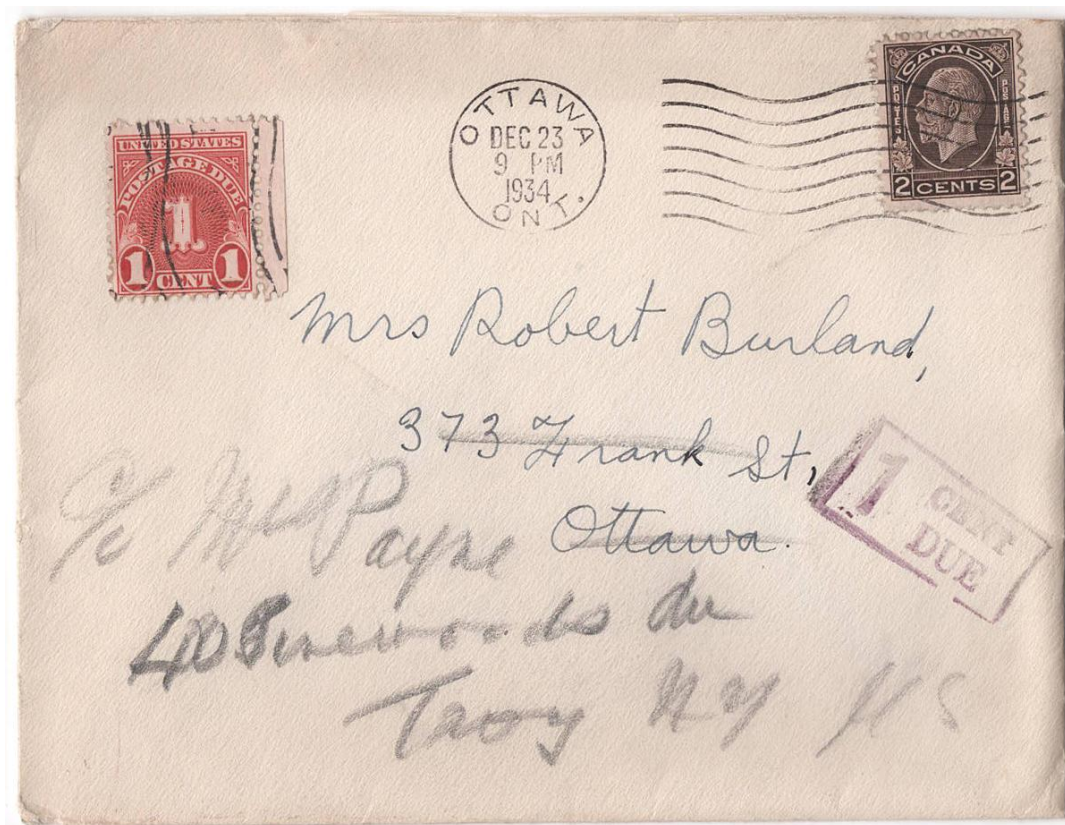 UNITED STATES
POSTAGE DUE
1
1 CENT 1
OTTAWA
DEC 23
9 PM
1934
ONT.
CANADA
POSTES POSTAGE
2 CENTS 2
Mrs Robert Burland,
373 Frank St,
Ottawa.
1 CENT
DUE
c/o Payne
Troy NY US